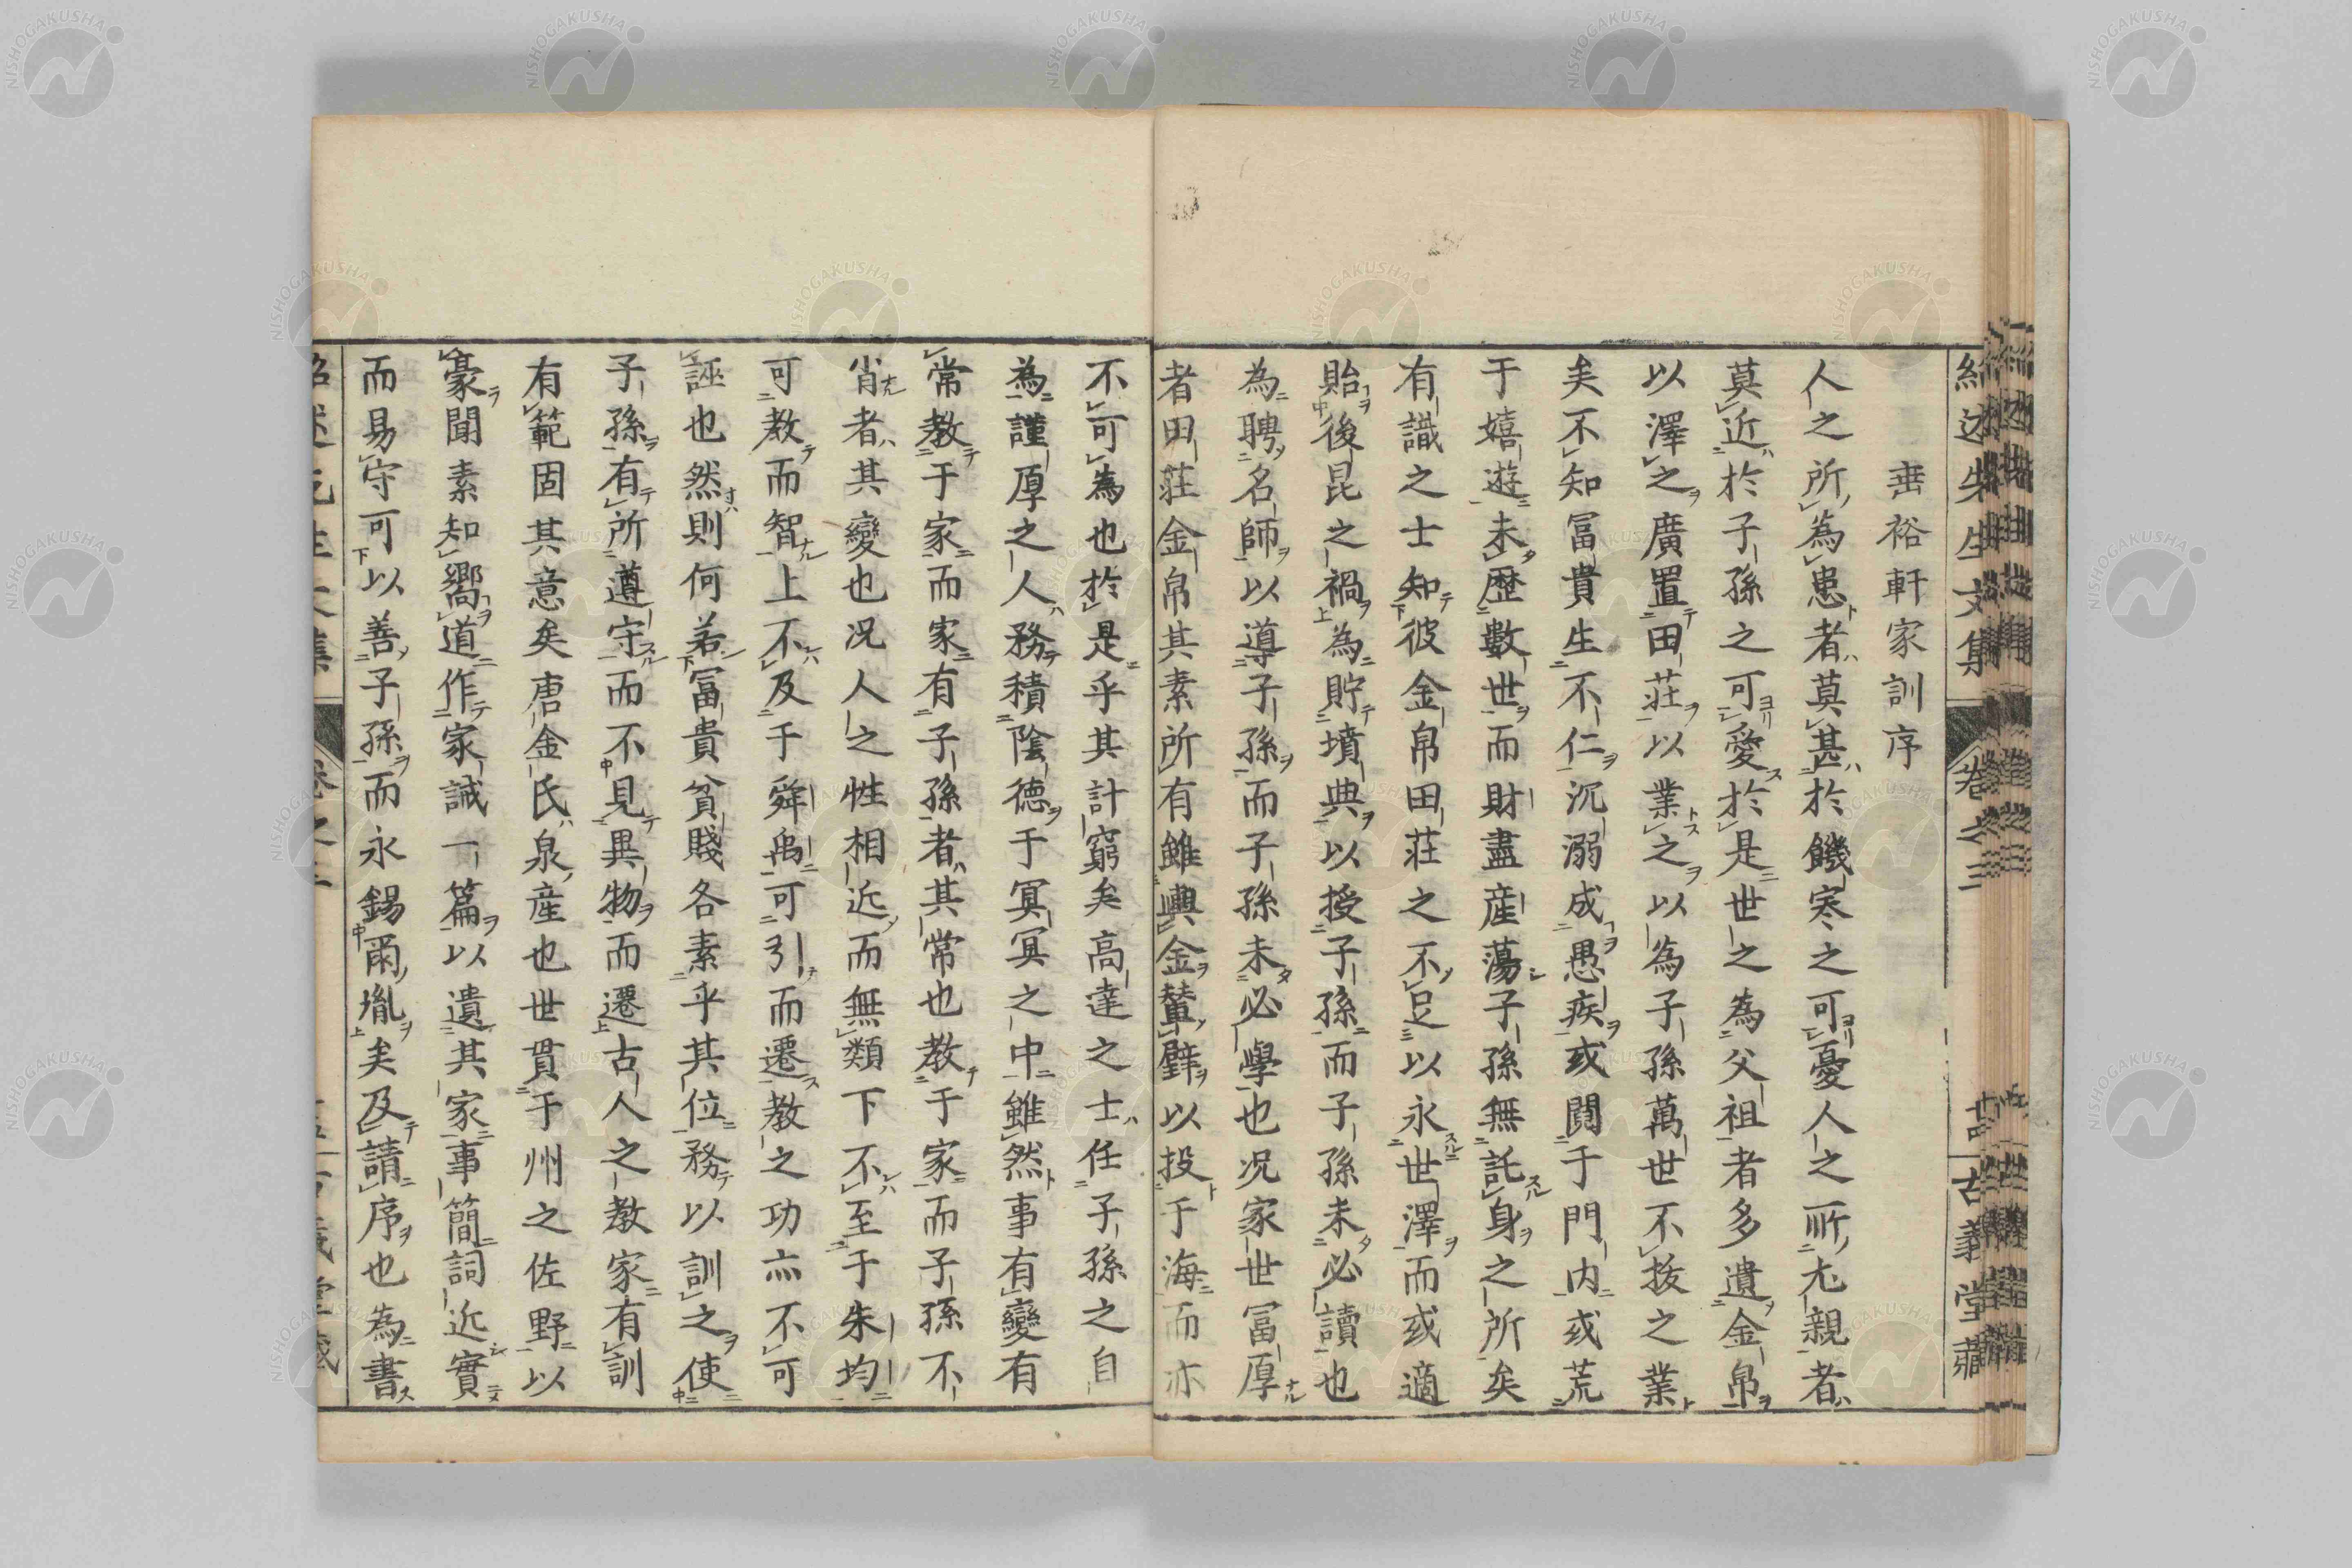 紹述先生文集 卷之三 古義堂藏
垂裕軒家訓序
人之所為患者莫甚於饑寒之可憂人之所尤親者
莫近於子孫之可愛於是世之為父祖者多遺金帛
以澤之廣置田莊以業之以為子孫萬世不拔之業
矣不知富貴生不仁沉溺成愚疾或鬩于門內或荒
于嬉遊未歷數世而財盡産蕩子孫無託身之所矣
有識之士知彼金帛田莊之不足以永世澤而或適
貽後昆之禍為貯墳典以授子孫而子孫未必讀也
為聘名師以導子孫而子孫未必學也况家世富厚
者田莊金帛其素所有雖輿金輦璧以投于海而亦
不可為也於是乎其計窮矣高達之士任子孫之自
為謹厚之人務積陰德于冥冥之中雖然事有變有
常教于家而家有子孫者其常也教于家而子孫不
肖者其變也况人之性相近而無類下不至于朱均
可教而智上不及于舜禹可引而遷教之功亦不可
誣也然則何若富貴貧賤各素乎其位務以訓之使
子孫有所遵守而不見異物而遷古人之教家有訓
有範固其意矣唐金氏泉産也世貫于州之佐野以
豪聞素知嚮道作家誡一篇以遺其家事簡詞近實
而易守可以善子孫而永錫爾胤矣及請序也為書
NISHOGAKUSHA